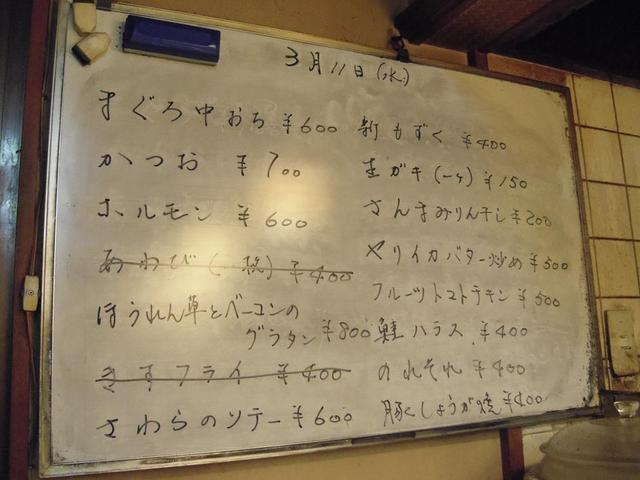 3月11日(水)
まぐろ中おち ¥600
かつお ¥700
ホルモン ¥600
あわび(一枚) ¥400
ほうれん草とベーコンの
グラタン ¥800
きすフライ ¥400
さわらのソテー ¥600
新もずく ¥400
生ガキ(一ケ) ¥150
さんまみりん干し ¥200
ヤリイカバター炒め ¥500
フルーツトマトチキン ¥500
鮭ハラス ¥400
のれそれ ¥400
豚しょうが焼 ¥400